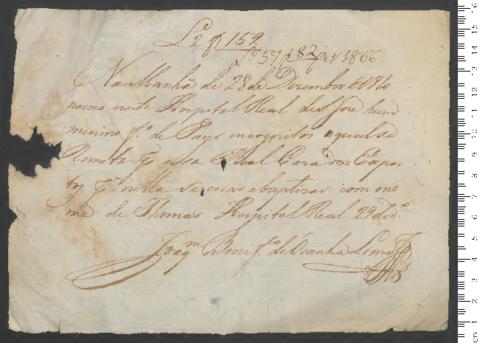 Lº 2 f 159
nº 59 f 82 1866
Na Manhã de 28 de Dezembro de 1840
nasceo neste Hospital Real de S José hum
menino fº de Pays incognitos o qual se
Remete pª essa Real Caza dos Expos
tos pª nella se criar e baptizar com o no
me de Thomas Hospital Real 29 dº
Joaqm Bonifº de